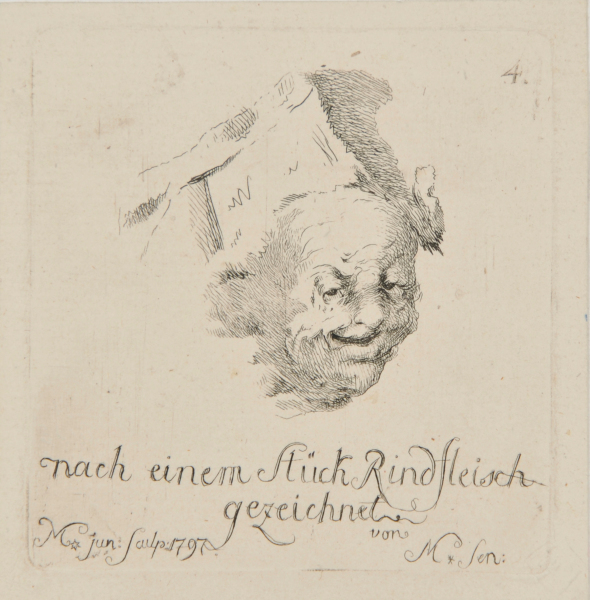 4.
nach einem Stück Rindfleisch
gezeichnet
von
M* jun: sculp: 1797.
M* Sen: